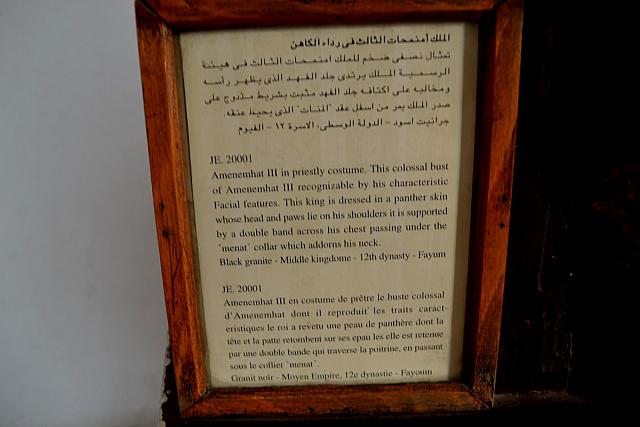 الملك أمنمحات الثالث فى رداء الكاهن
تمثال نصفى ضخم للملك امنمحات الثالث فى هيئته
الرسمية الملك يرتدى جلد الفهد الذى يظهر رأسه
ومخالبه على اكتافه جلد الفهد مثبت بشريط مذدوج على
صدر الملك يمر من اسفل عقد "المنات" الذى يحيط عنقه.
جرانيت اسود - الدولة الوسطى، الاسرة ١٢ - الفيوم
JE. 20001
Amenemhat III in priestly costume. This colossal bust
of Amenemhat III recognizable by his characteristic
Facial features. This king is dressed in a panther skin
whose head and paws lie on his shoulders it is supported
by a double band across his chest passing under the
"menat" collar which addorns his neck.
Black granite - Middle kingdome - 12th dynasty - Fayum
JE. 20001
Amenemhat III en costume de prêtre le buste colossal
d'Amenemhat dont il reproduit les traits caract-
eristiques le roi a revetu une peau de panthère dont la
tête et la patte retombent sur ses epau les elle est retenue
par une double bande qui traverse la poitrine, en passant
sous le collier "menat".
Granit noir - Moyen Empire, 12e dynastie - Fayoum